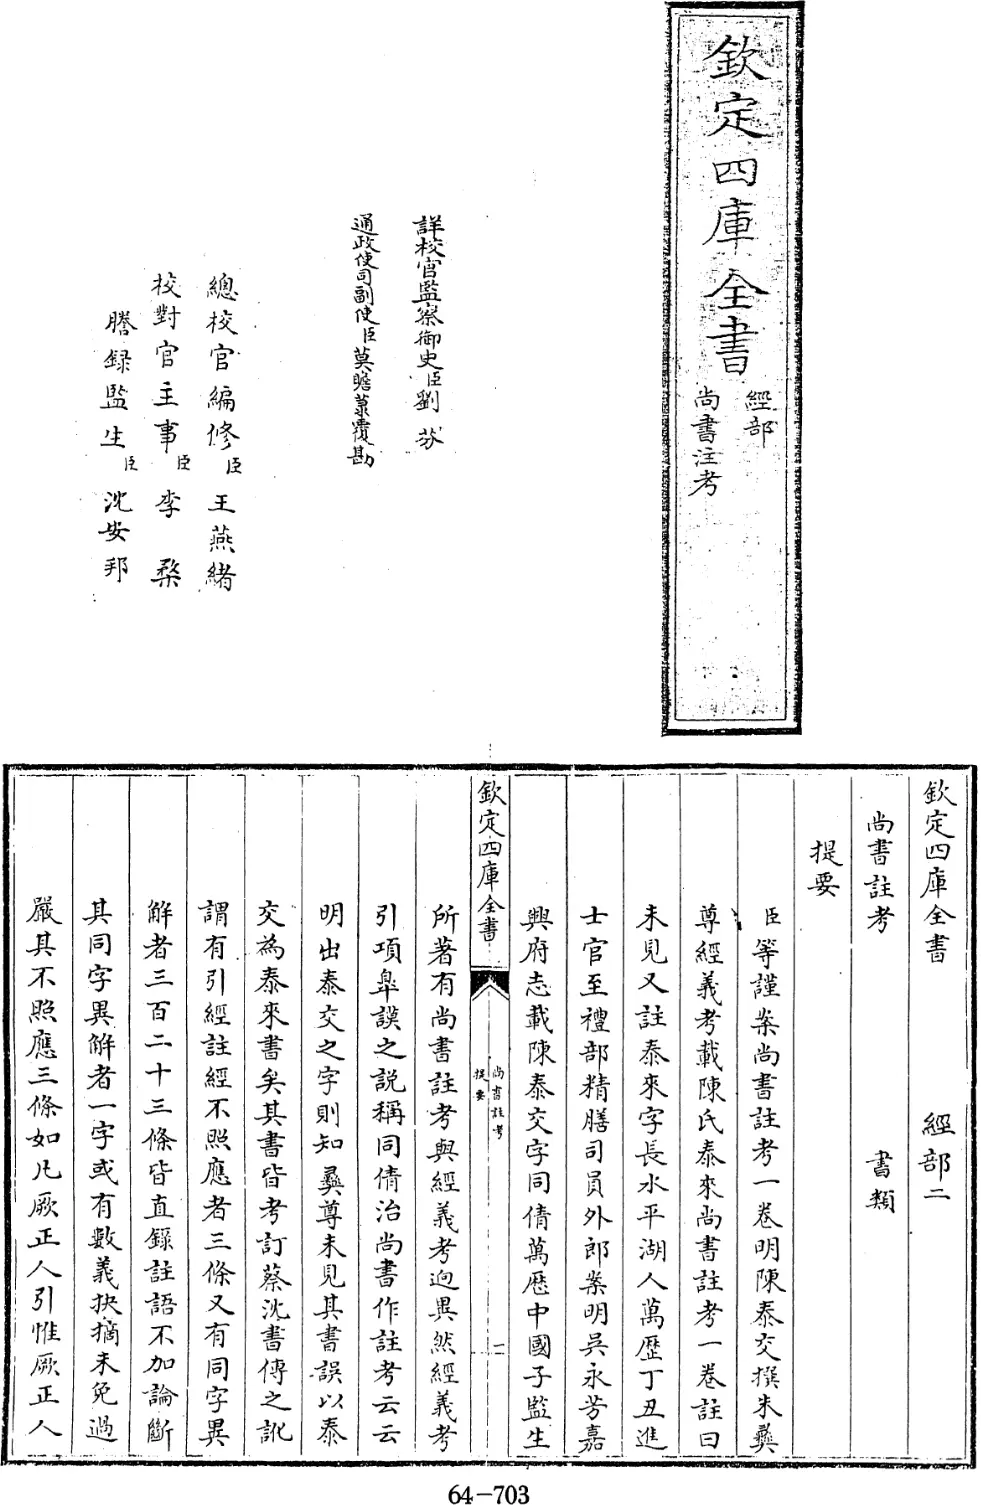 欽定四庫全書
經部
尚書注考
詳校官監察御史臣劉芬
通政使司副使臣莫瞻菉覆勘
總校官編修臣王燕緒
校對官主事臣李棨
謄録監生臣沈安邦
欽定四庫全書 經部二
尚書註考 書類
提要
臣等謹案尚書註考一卷明陳泰交撰朱彝
尊經義考載陳氏泰來尚書註考一卷註曰
未見又註泰來字長水平湖人萬歷丁丑進
士官至禮部精膳司員外郎案明吳永芳嘉
興府志載陳泰交字同倩萬歷中國子監生
欽定四庫全書
尚書註考
提要
一
所著有尚書註考與經義考逈異然經義考
引項臯謨之説稱同倩治尚書作註考云云
明出泰交之字則知彛尊未見其書誤以泰
交為泰來書矣其書皆考訂蔡沈書傳之訛
謂有引經註經不照應者三條又有同字異
解者三百二十三條皆直錄註語不加論斷
其同字異解者一字或有數義抉摘未免過
嚴其不照應三條如凡厥正人引惟厥正人
64-703